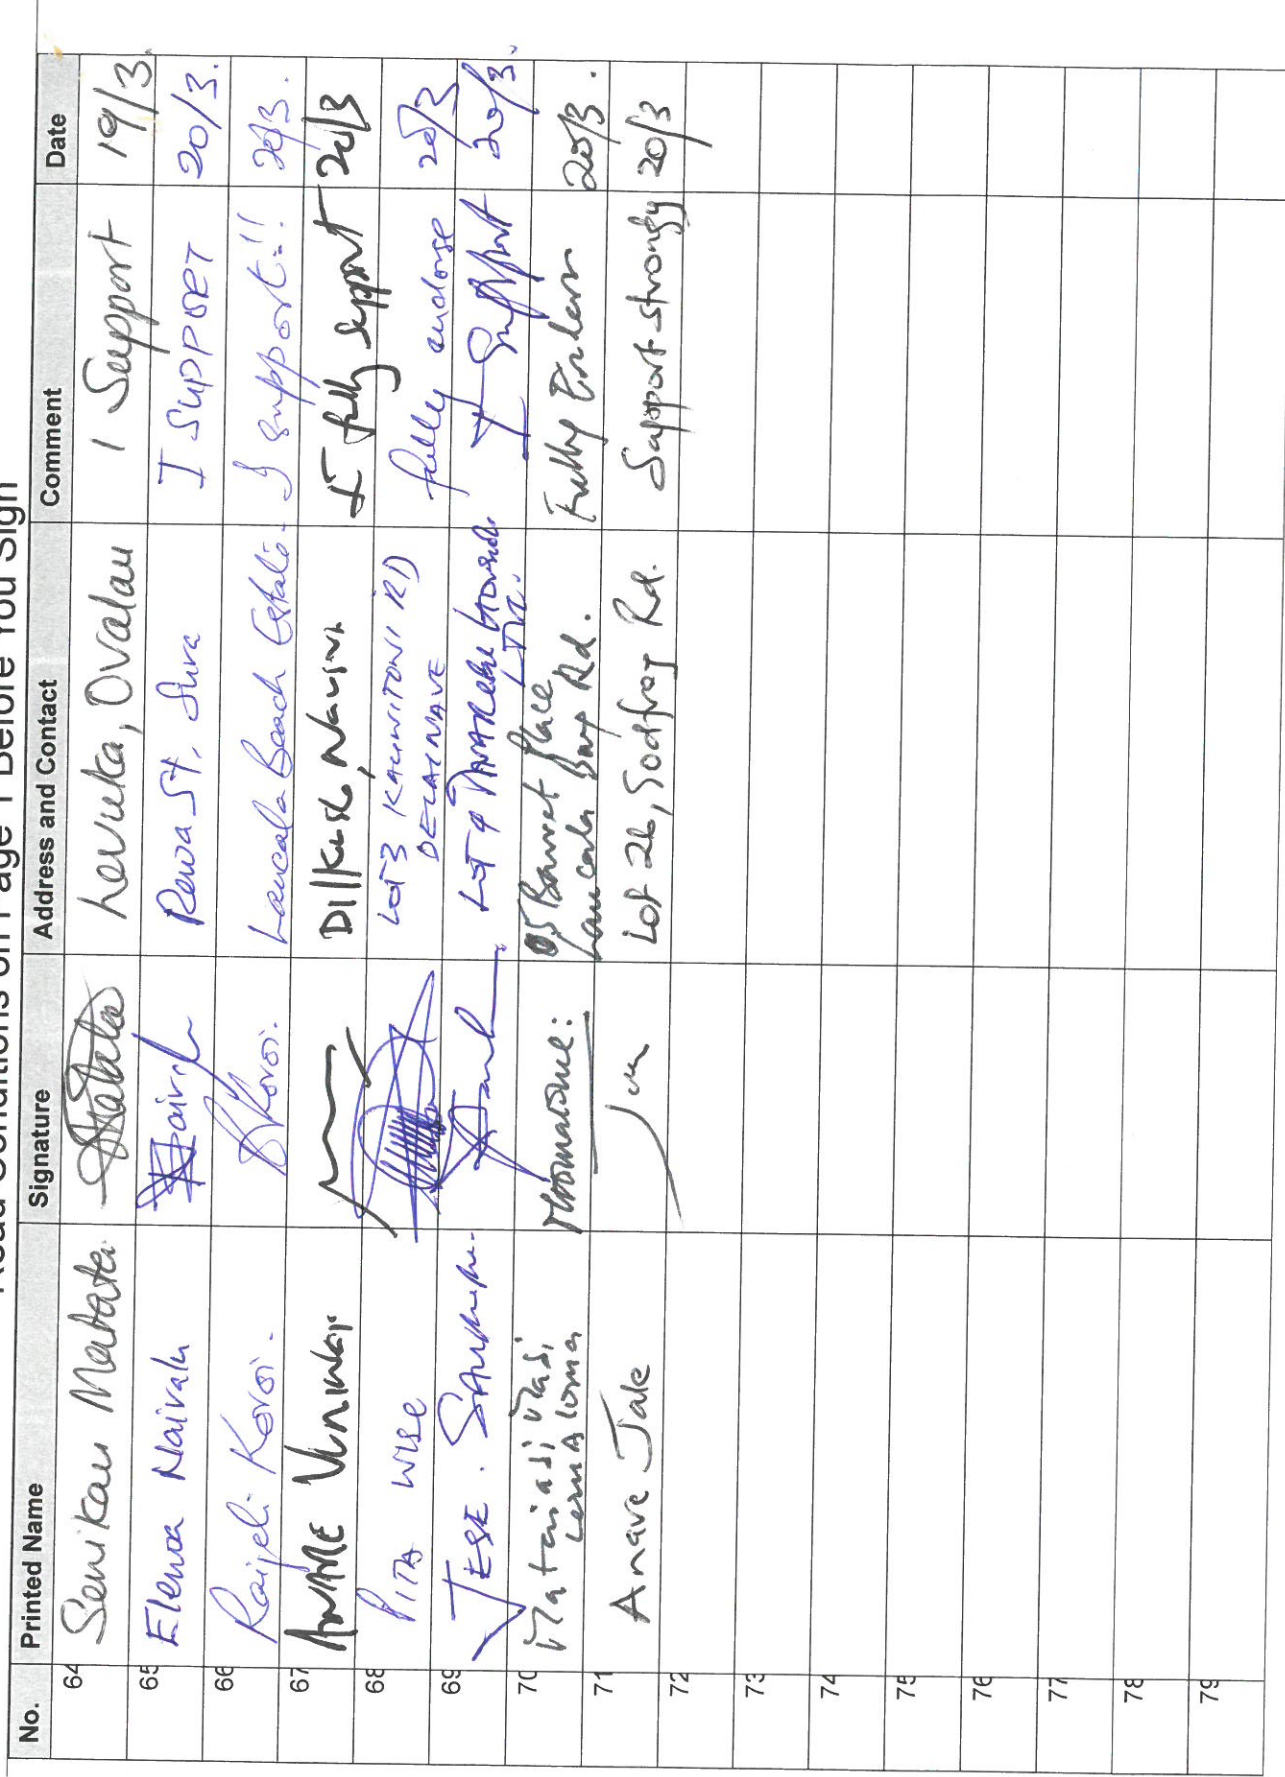 Read Conditions on Page 1 Before You Sign
No. Printed Name Signature Address and Contact Comment Date
64 Senikau Levuka, Ovalau I Support 19/3.
65 Elenoa Naivalu Rewa St, Suva I SUPPORT 20/3.
66 Raijeli Koroi. Koroi. Laucala Beach Estate. I support..!! 20/3.
67 Dilkusha, Nausori I fully support 20/3
68 PITA WISE LOT 3 KAUNITONI RD
DELAINAVE fully endorse 20/3
69 JESE. LOT 9 I Support 20/3.
70 Matai
05 Place
Laucala Bay Rd. Fully 20/3.
71 Anare Jale Lot 26, Godfrey Rd. Support strongly 20/3
72
73
74
75
76
77
78
79